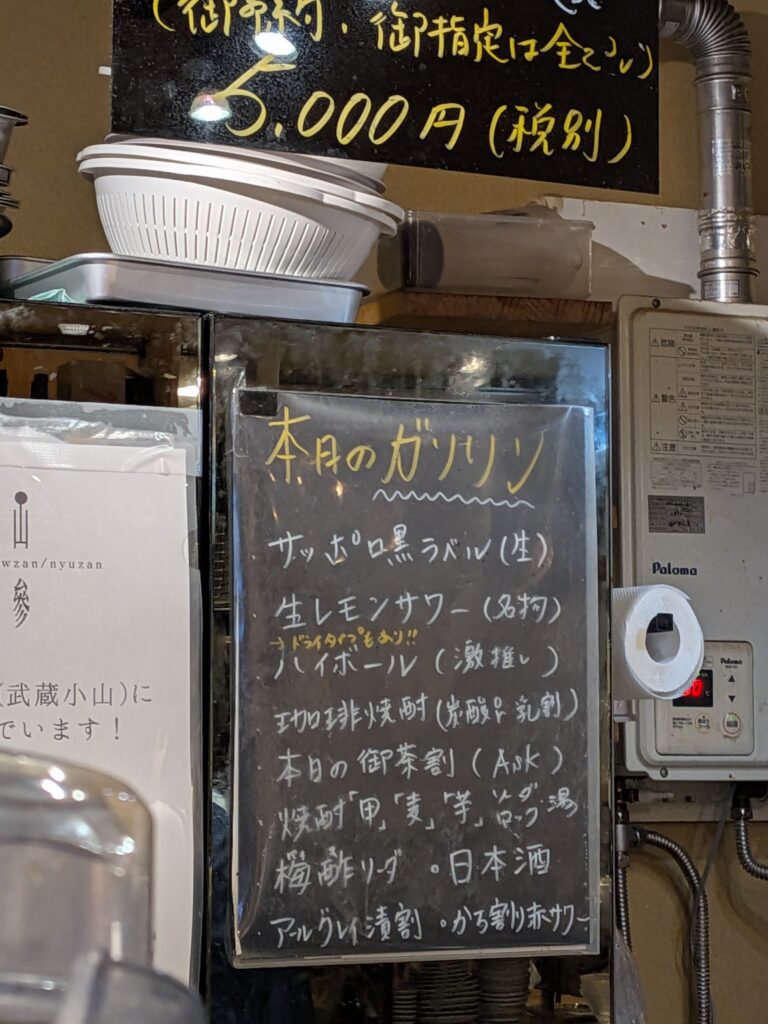 (御予約、御指定は全てコレ)
5,000円(税別)
山
wzan/nyuzan
參
(武蔵小山)に
でいます!
本日のガソリン
サッポロ黒ラベル(生)
生レモンサワー(名物)
→ドライタイプもあり!!
ハイボール(激推し)
珈琲焼酎(炭酸or乳割)
本日の御茶割(Ask)
焼酎「甲」「麦」「芋」ソーダ・ロック・湯
梅酢ソーダ ・日本酒
アールグレイ漬割 ・かち割り赤サワー
危険
警告
注意
Paloma
Paloma